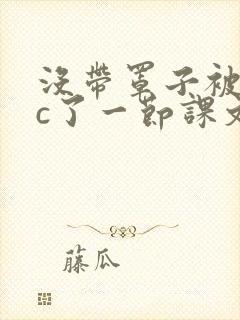 没带罩子被
c了一节课文
藤瓜